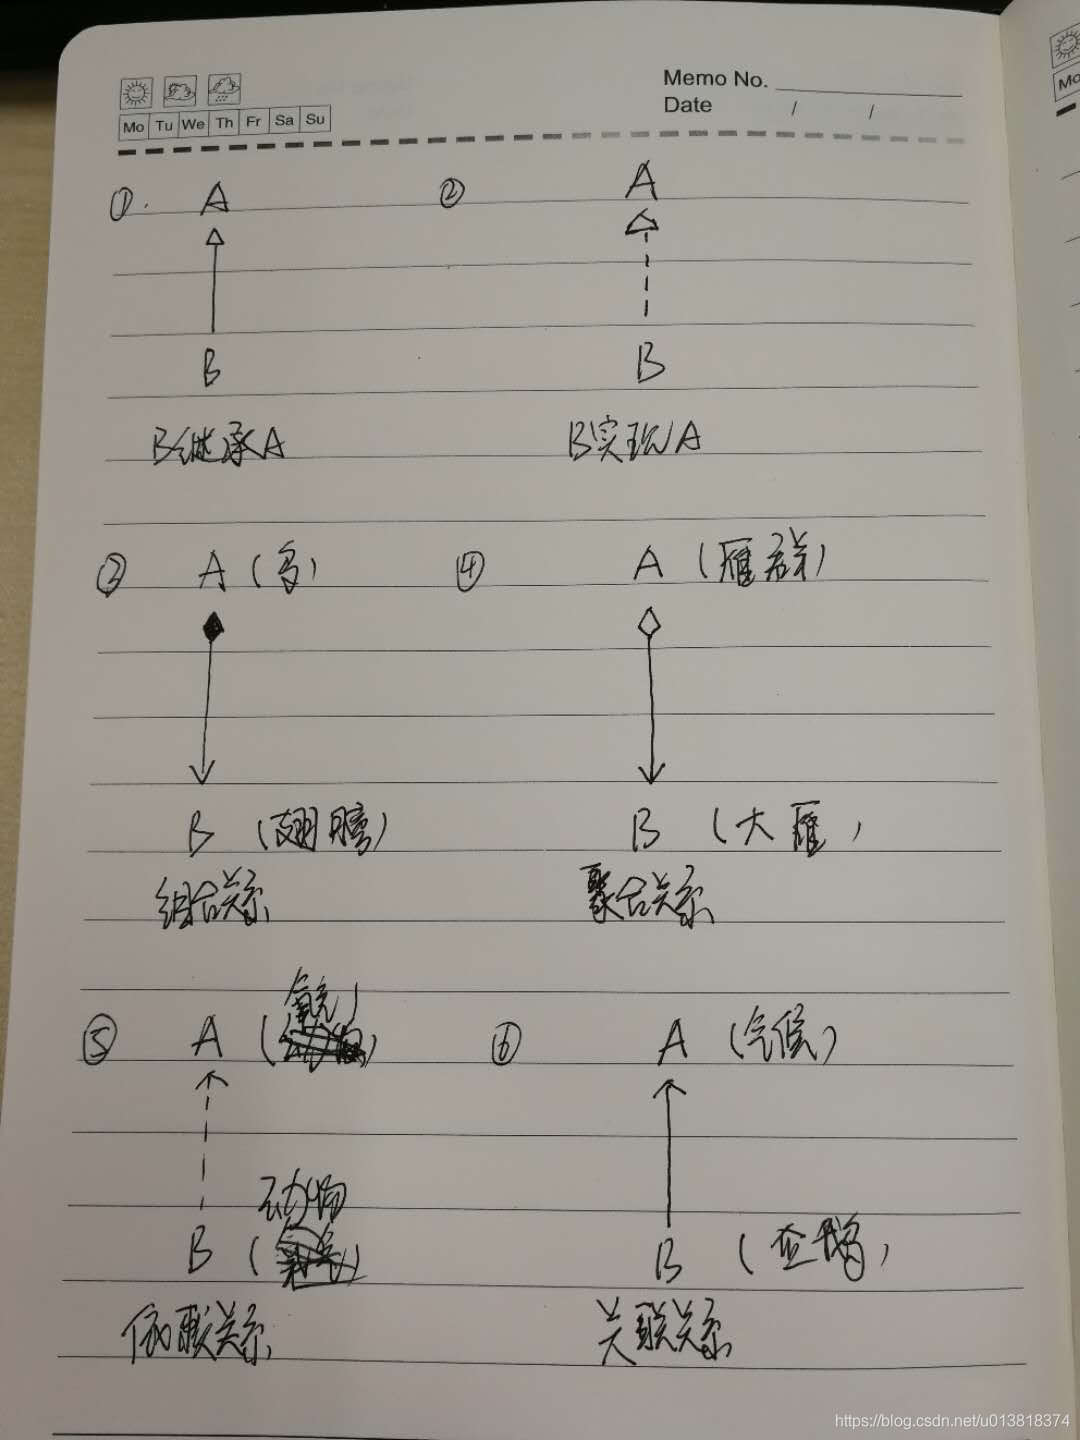 Memo No.
Mo Tu We Th Fr Sa Su
Date / /
① A
B
B继承A
② A
B
B实现A
③ A (鸟)
B (翅膀)
组合关系
④ A (雁群)
B (大雁)
聚合关系
⑤ A (氧气)
动物
B
关系
⑥ A (气候)
B (企鹅)
关联关系
Mo
https://blog.csdn.net/u013818374